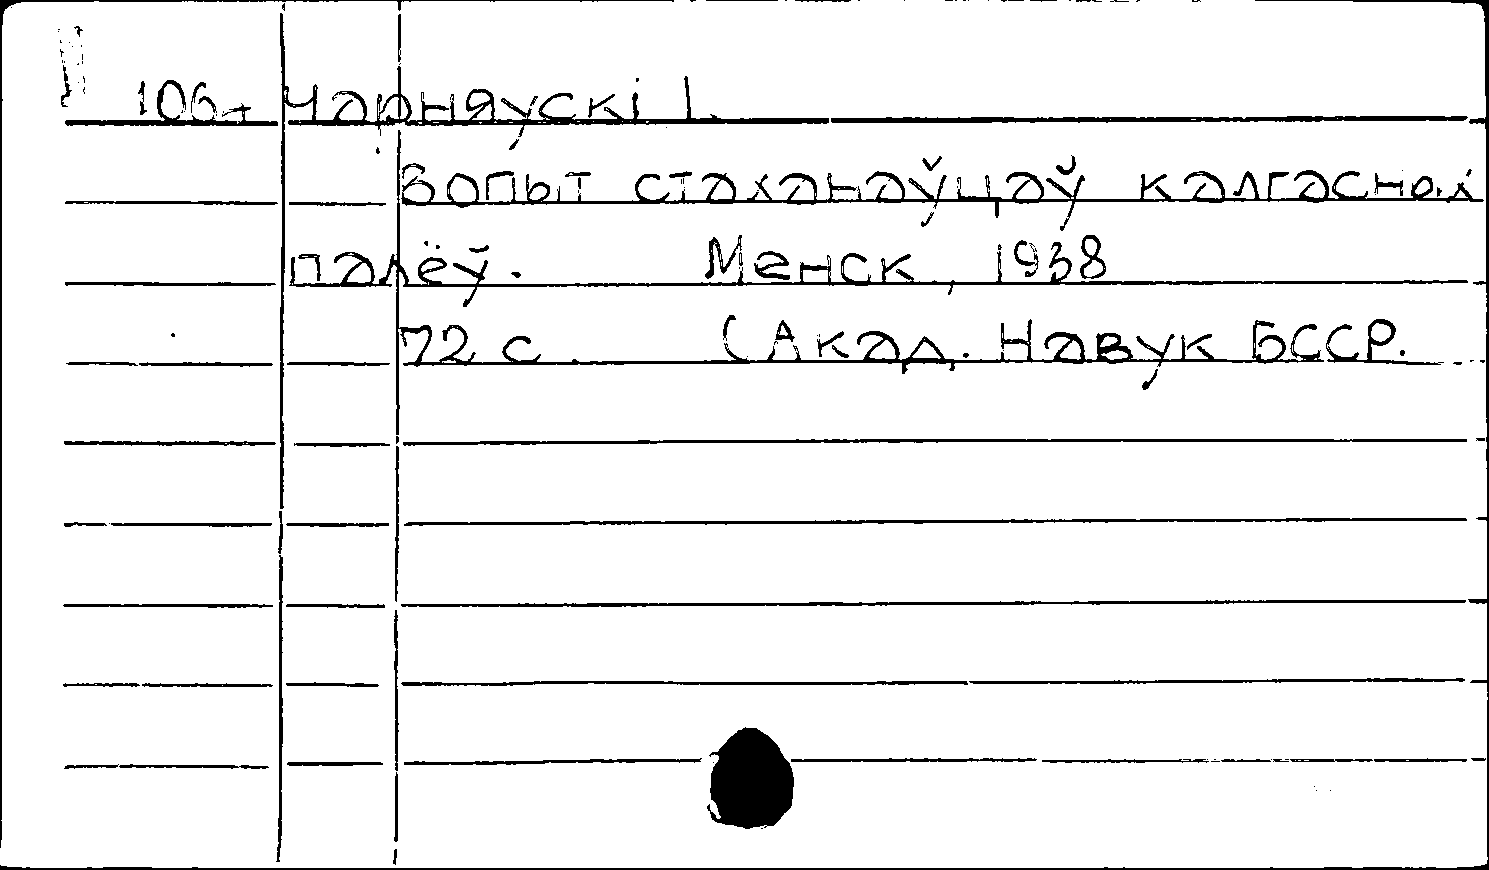 Чарняускі І.
Вопыт стаханаўцаў калгасных
палёў. Менск, 1938
72 с. (Акад. Навук БССР.